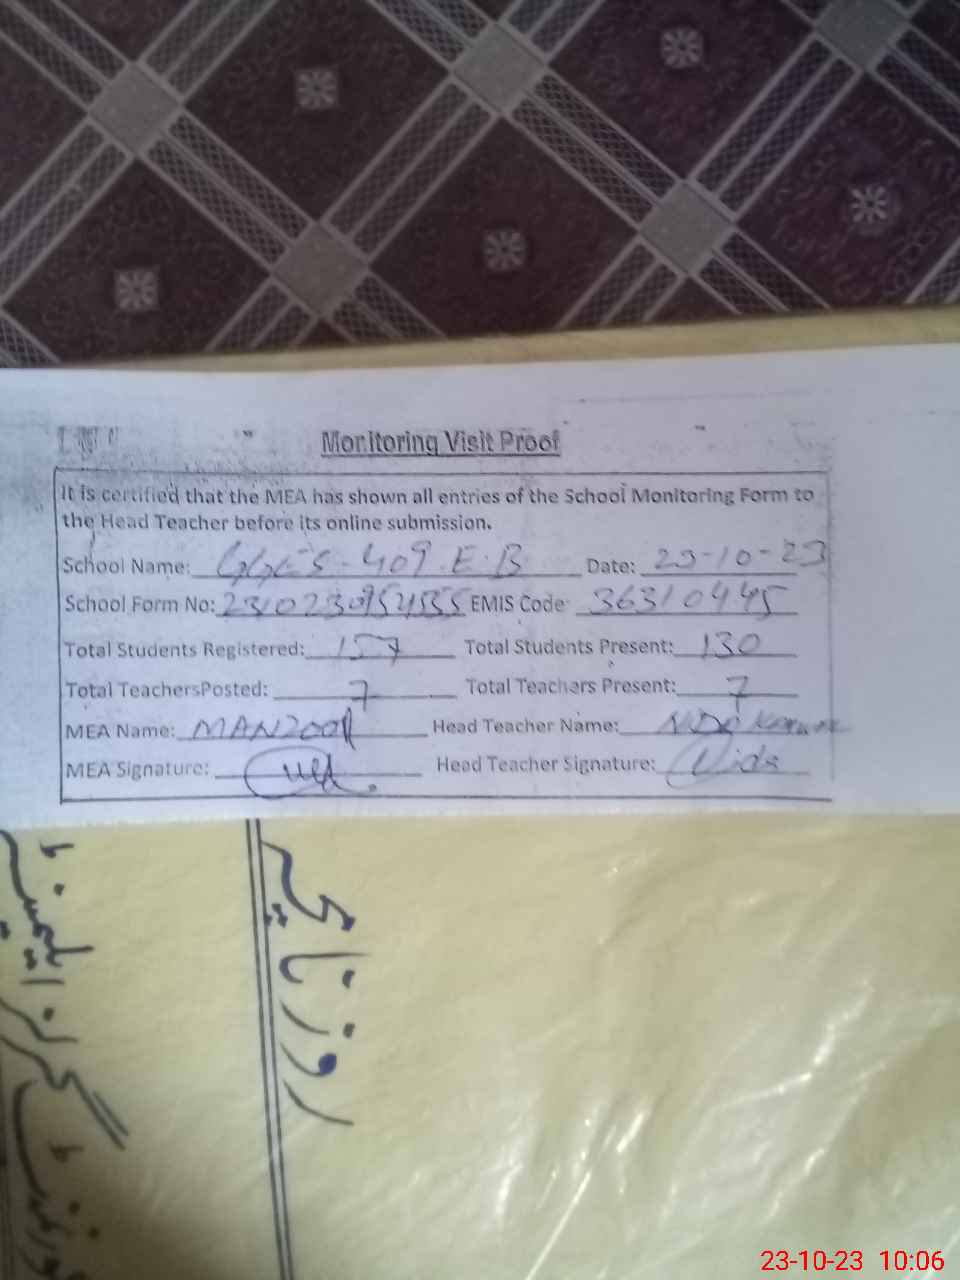 Monitoring Visit Proof
It is certified that the MEA has shown all entries of the School Monitoring Form to
the Head Teacher before its online submission.
School Name: GGES-409.E.B Date: 23-10-23
School Form No: EMIS Code: 36310445
Total Students Registered: 157 Total Students Present: 130
Total TeachersPosted: 7 Total Teachers Present: 7
MEA Name: MANZOOR Head Teacher Name:
MEA Signature: Head Teacher Signature: Nida
روزنامچہ
گورنمنٹ گرلز ایلیمنٹری
23-10-23 10:06